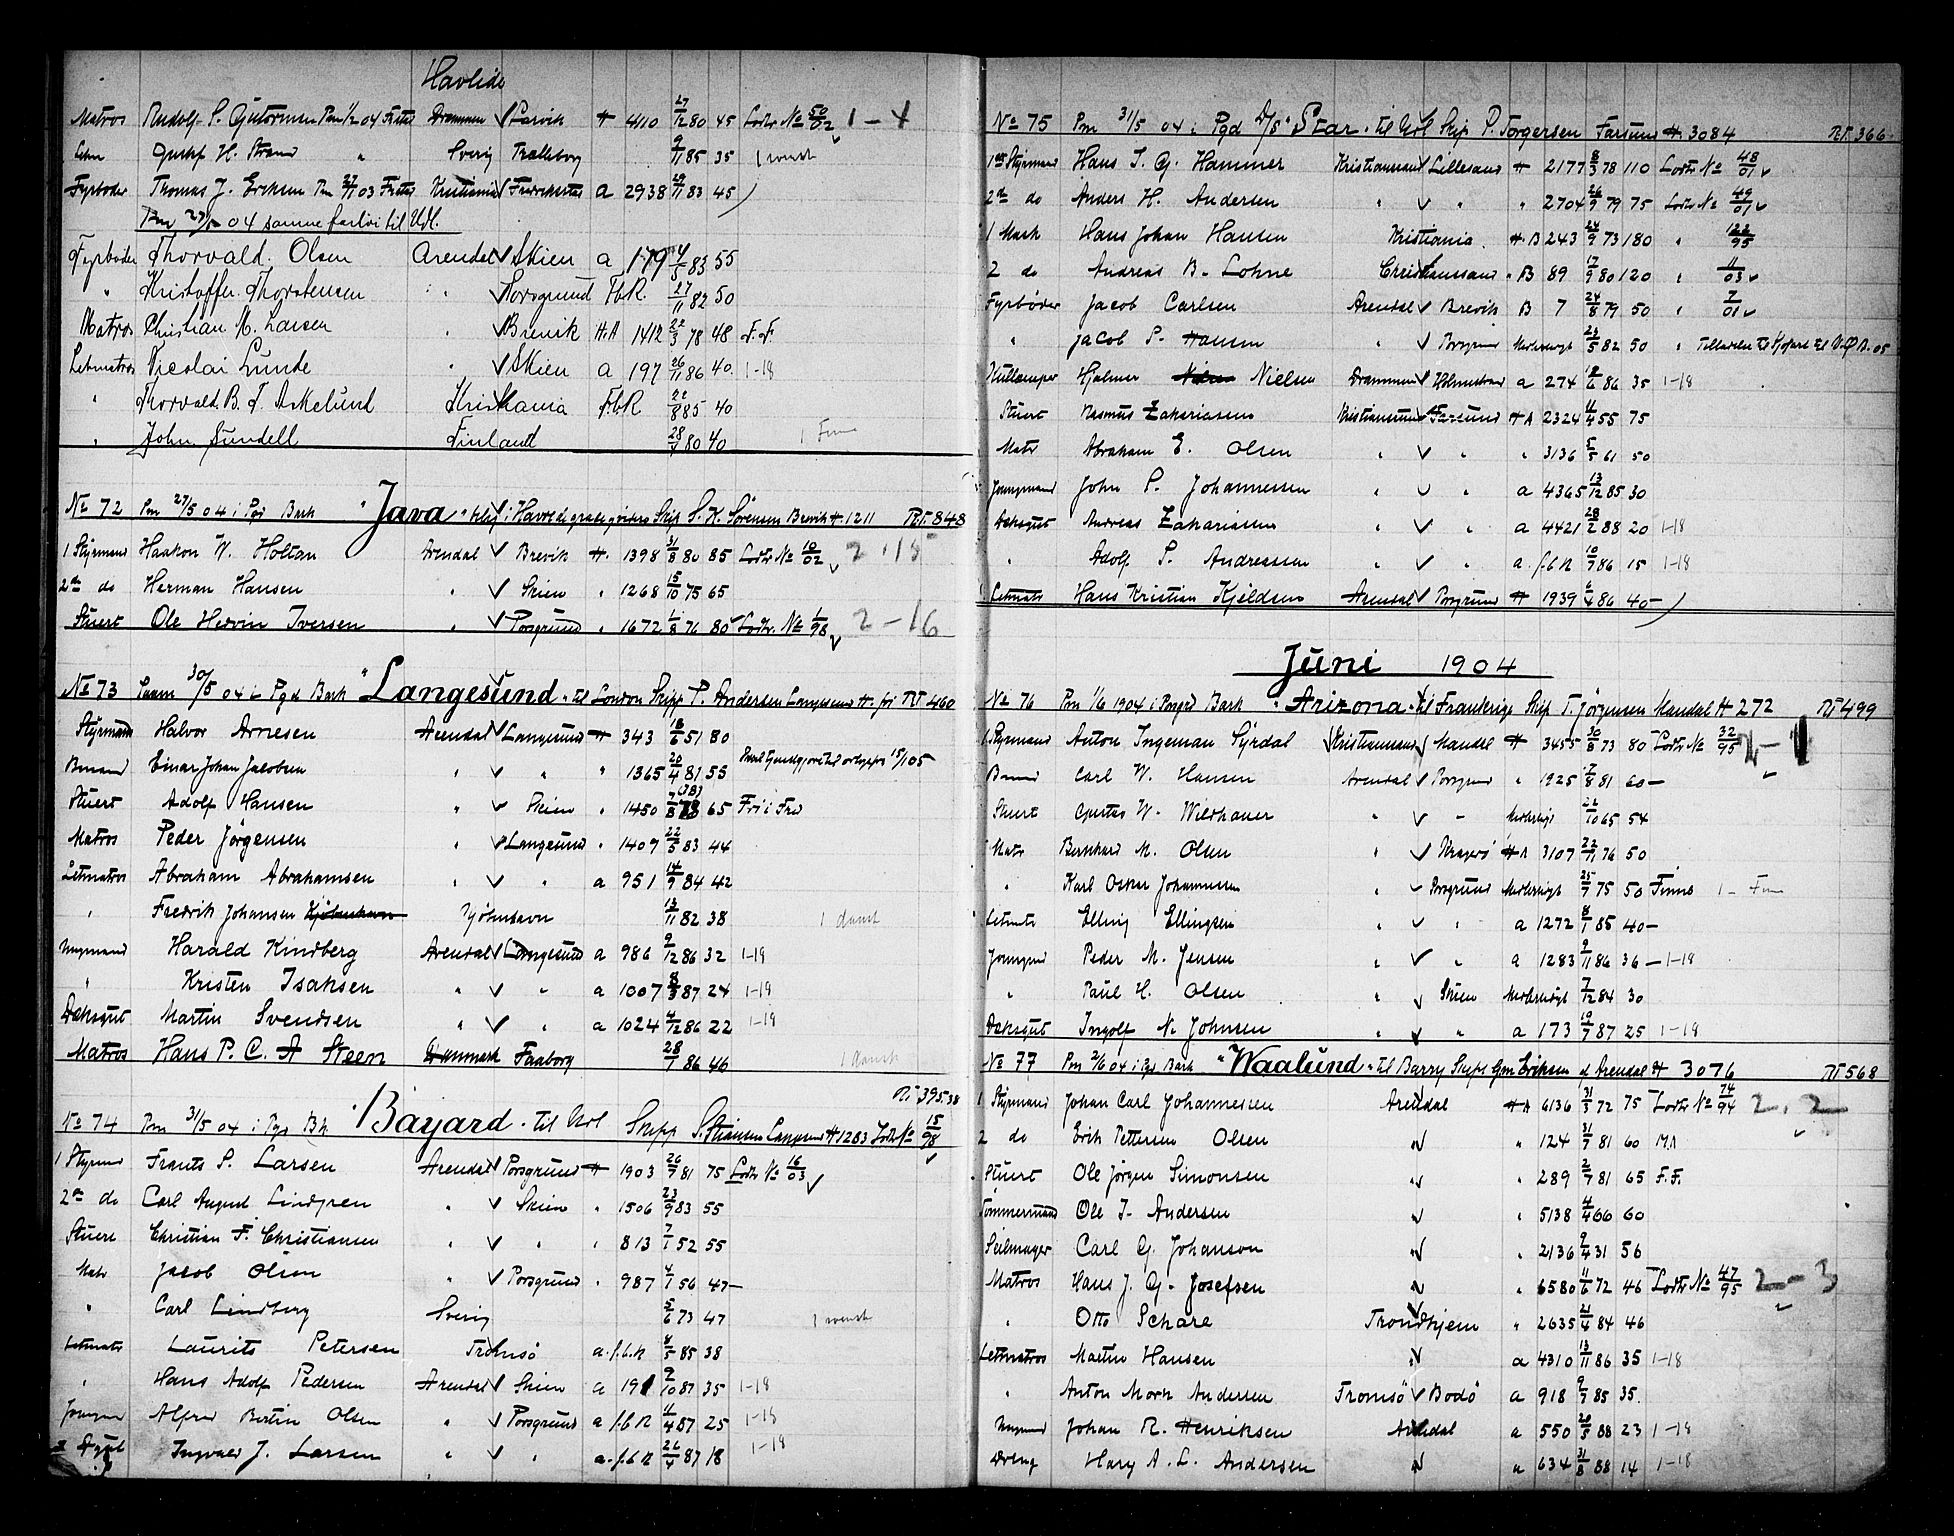 Havlide
Matros Rudolf S. Pm 1/2 04 Drammen Larvik H 4110 27/12 80 45 Lods No 50/02 1-4
Gustaf H. Strand " Sverig Trelleborg 9/11 85 35 1 svensk
Fyrbøder Thomas J. Eriksen Pm 27/11 03 Kristiania Fredrikstad a 2938 29/11 83 45
04 samme fartøi til Udl.
Fyrbøder Thorvald. Olsen Arendal Skien a 179 4/5 83 55
" Kristoffer Thorstensen " Porsgrund F.b.R. 27/11 82 50
Matros Christian M. Larsen " Brevik H.A 1412 22/3 78 48 F.F.
Letmatros Nicolai Lunde " Skien a 197 26/11 86 40 1-18
" Thorvald. B. F. Askelund Kristiania F.b.R 22/8 85 40
" John Sundell Finland 28/1 80 40 1 Finne
No 72 Pm 27/5 04 i Pgd Bark "Java" Havre de grace Skip S. K. Sørensen Brevik H. 1211 RT. 848
1 Styrmand Haakon W. Holtan Arendal Brevik H. 1398 31/8 80 85 Lods No 10/02 2-15
2den do Herman Hansen " Skien " 1268 15/10 75 65
Stuert Ole Hervin Iversen " Porsgrund " 1672 1/8 76 80 Lods. No 1/98 2-16
No 73 30/5 04 i Pgd Bark "Langesund" til London Skipp P. Andersen Langesund H. RT 460
Styrmand Halvor Arnesen Arendal Langesund H 343 18/6 51 80
Einar Johan Jacobsen " " " 1365 20/4 81 55
Stuert Adolf Hansen " Skien " 1450 7/8 78 (78) 65 Fri i Fred
Matros Peder Jørgensen " Langesund " 1409 22/5 83 44
Letmatros Abraham Abrahamsen " " a 951 14/9 84 42
" Fredrik Johansen Kjøbenhavn Kjøbenhavn 13/11 82 38 1 dansk
Ungmand Harald Kindberg Arendal Langesund a 986 9/12 86 32 1-18
" Kristen Isaksen " " a 1007 8/3 87 24 1-18
Dæksgut Martin Svendsen " " a 1024 4/12 86 22 1-18
Matros Hans P. C. A Steen Danmark Faaborg 28/7 86 46 1 dansk
RT 395.38
No 74 Pm 31/5 04 i Pgd Bk "Bayard" til Udl Skipp S. Langesund H 1283 Lods No 15/98
1 Styrmd Frants S. Larsen Arendal Porsgrund H 1903 26/7 81 75 Lods No 16/03
2den do Carl August Lindgren " Skien " 1506 23/9 83 55
Stuert Christian F. Christiansen " " " 813 7/1 52 55
Matr Jacob Olsen " Porsgrund " 987 4/1 56 47-
" Carl Lindberg Sverig 5/6 73 47 1 svensk
Letmatr Laurits Petersen Tromsø a.f.b.R 8/5 85 38
" Hans Adolf Pedersen Arendal Skien a 191 9/10 87 35 1-18
Jungmd Alfred Bertin Olsen " Porsgrund a f.b.R 11/4 87 25 1-18
Dgut Ingvald J. Larsen " " a.f.b.R 26/4 87 18 1-18
No 75 Pm 31/5 04 i Pgd D/S "Star" til Udl Skip P. Torgersen Farsund H. 3084 RT. 366
1ste Styrmand Hans T. G. Hammer Kristianssand Lillesand H 2177 8/3 78 110 Lods No 48/01
2den do Anders H. Andersen " " " 2704 26/9 79 75 Lods No 49/01
1 Mask Hans Johan Hansen Kristiania H.B 243 24/9 73 180 " 122/95
2 do Andreas B. Lohne Christianssand " B 89 17/9 80 120 " 11/03
Fyrbøder Jacob Carlsen Arendal Brevik B 7 24/8 79 50 " 7/01
" Jacob P. Hansen " Porsgrund 23/5 82 50
Kullemper Hjalmar Nielsen Drammen Holmestrand a 274 12/6 86 35 1-18
Stuert Rasmus Zakariasen Kristianssand Farsund H A 2324 11/4 55 75
Matr Abraham E. Olsen " " " 3136 5/5 61 50
Jungmand John P. Johannessen " " a 4365 13/12 85 30
Dæksgut Andreas Zakariasen " " a 4421 28/2 88 20 1-18
" Adolf P. Andreassen " " a. f.b.R 10/7 86 15 1-18
Letmatr Hans Kristian Kjeldsen Arendal Porsgrund H 1939 6/4 86 40-
Juni 1904
No 76 Pm 1/6 1904 i Porsgrd Bark "Arizona" til Frankrige Skip T. Jørgensen Mandal H 272 RT 499
1 Styrmand Anton Ingeman Syrdal Kristianssand Mandal H 3455 30/8 73 80 Lods No 32/95 2-1
Carl W. Hansen Arendal Porsgrund " 1925 17/8 81 60-
Stuert Gustav W. Wildhauer " " 22/10 65 54
Matr Bernhard M. Olsen " Kragerø H A 3107 22/11 76 50
" Karl Oskar Johannessen " Porsgrund 25/7 75 50 Finne 1 - Finne
Letmatr Elling Ellingsen " " a 1272 8/1 85 40-
Jungmd Peder M. Jensen " " a 1283 9/11 86 36 - 1-18
" Paul H. Olsen " Skien 7/12 84 30
Dæksgut Ingolf N. Johnsen " " a 173 19/7 87 25 1-18
No 77 Pm 2/6 04 i Pgd Bark "Waalund" til Barry Skipp Gm Eriksen af Arendal H 3076 RT 568
1 Styrmand Johan Carl Johannessen Arendal H A 6136 31/3 72 75 Lods No 74/94 2.2
2 do Erik Pettersen Olsen " " 124 31/7 81 60 M.A
Stuert Ole Jørgen Simonsen " " 289 2/7 81 65 F.F.
Tømmermand Ole T. Andersen " " 5138 4/4 66 60
Seilmager Carl G. Johanson " " 2136 9/4 31 56
Matros Hans J. G. Josefsen " " 6580 11/6 72 46 Lods No 47/95 2-3
" Otto Schare Trondhjem " 2635 21/4 84 46
Letmatros Martin Hansen " a 4310 13/11 86 35 1-18
" Anton Mork Andersen Tromsø Bodø a 918 9/7 85 35.
Ungmd Johan R. Henriksen Arendal a 550 20/5 88 23 1-18
Dreng Hary A. L. Andersen " a 634 31/8 88 14 1-18